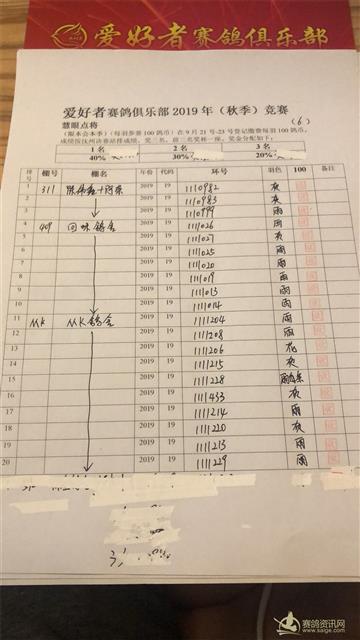 爱好者赛鸽俱乐部
爱好者赛鸽俱乐部 2019 年（秋季）竞赛
慧眼点将 （6）
（限本会本季）（每羽参赛 100 鸽币）在 9 月 21 号-23 号登记缴费每羽 100 鸽币，
1 名 2 名 3 名
40% 30% 20%
排号 棚号 棚名 年份 代码 环号 羽色 100 备注
1 311 2019 19 1110982 灰
2 2019 19 1110983 灰
3 2019 19 1110999 雨
4 2019 19 1111026 雨
5 2019 19 1111027 灰
6 2019 19 1111025 雨
7 2019 19 1111020 雨
8 2019 19 1111019 雨
9 2019 19 1111013 雨
10 2019 19 1111014 雨
11 2019 19 1111204 雨
12 2019 19 1111208 雨
13 2019 19 1111206 花
14 2019 19 1111215 灰
15 2019 19 1111228
16 2019 19 1111433 灰
17 2019 19 1111214 雨
18 2019 19 1111220 灰
19 2019 19 1111213 雨
20 2019 19 1111229 雨
赛鸽资讯网
www.saige.com